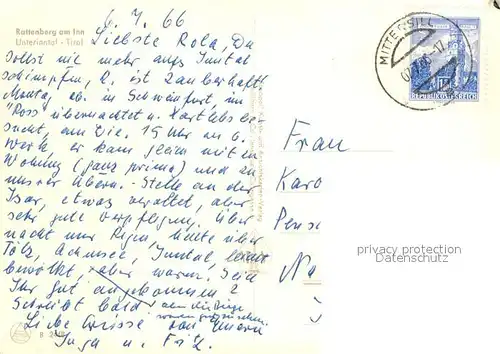 6. 7. 66
Rattenberg am Inn
Unterinntal - Tirol
Liebste Rola, Du
sollst nie mehr aufs Inntal
schimpfen, R. ist zauberhaft.
Montag ab. in Schweinfurt, im
"Ross" übernachtet u.
sucht, am Die. 15 Uhr am G.
Werk, er kam gleich mit in
Wohnung (ganz prima) und zu
unsrer Übern. - Stelle an der
Isar, etwas veraltet, aber
sehr gute Verpflegung, über
nacht nur Regen, heute über
Tölz, Achensee, Inntal, leicht
bewölkt, aber warm. Seid
Ihr gut angekommen?
Schreibt bald!
Liebe Grüsse von Euern
Inga u. Fritz.
Frau
Karo
Pens
MITTERSILL
REPUBLIK ÖSTERREICH
privacy protection
privacy protection